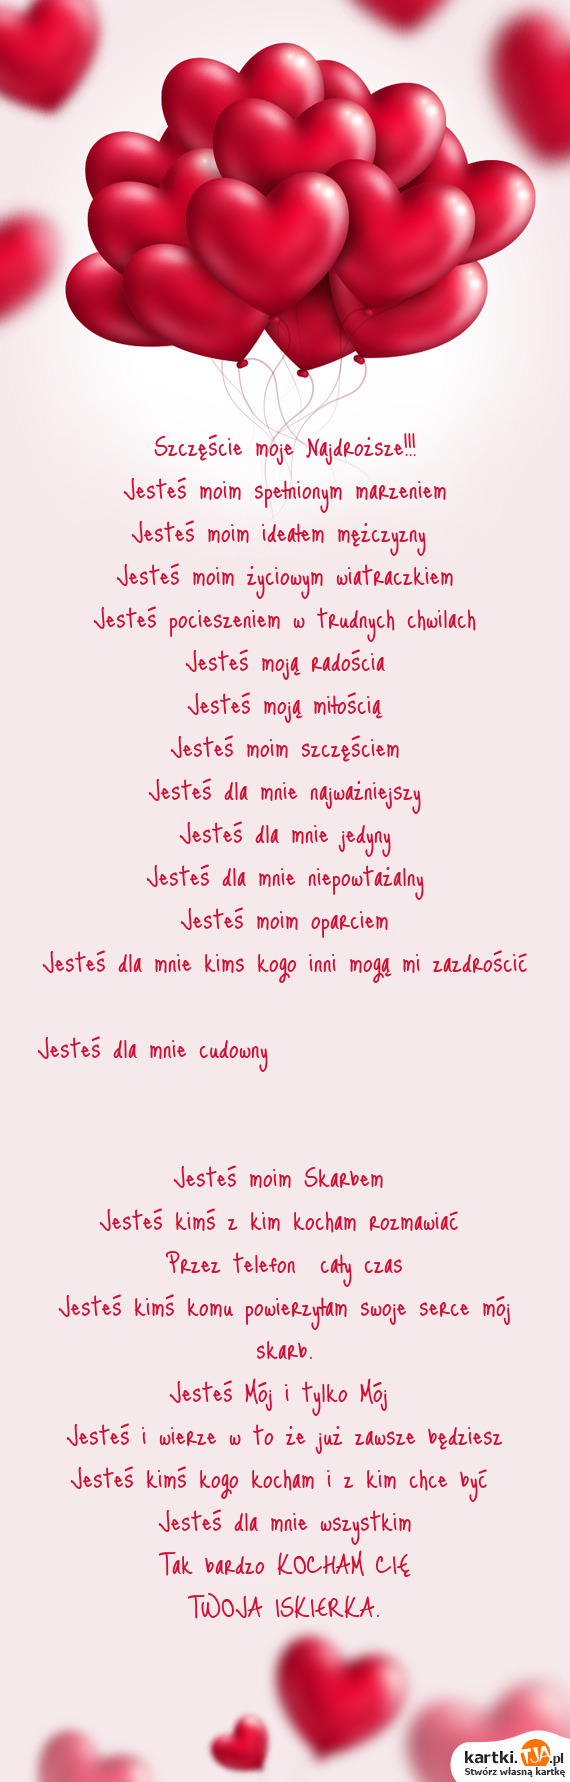 Szczęście moje Najdroższe!!!
Jesteś moim spełnionym marzeniem
Jesteś moim ideałem mężczyzny
Jesteś moim życiowym wiatraczkiem
Jesteś pocieszeniem w trudnych chwilach
Jesteś moją radościa
Jesteś moją miłością
Jesteś moim szczęściem
Jesteś dla mnie najważniejszy
Jesteś dla mnie jedyny
Jesteś dla mnie niepowtażalny
Jesteś moim oparciem
Jesteś dla mnie kims kogo inni mogą mi zazdrościć
Jesteś dla mnie cudowny
Jesteś moim Skarbem
Jesteś kimś z kim kocham rozmawiać
Przez telefon cały czas
Jesteś kimś komu powierzyłam swoje serce mój
skarb.
Jesteś Mój i tylko Mój
Jesteś i wierze w to że już zawsze będziesz
Jesteś kimś kogo kocham i z kim chce być
Jesteś dla mnie wszystkim
Tak bardzo KOCHAM CIĘ
TWOJA ISKIERKA.
kartki.TJA.pl
Stwórz własną kartkę